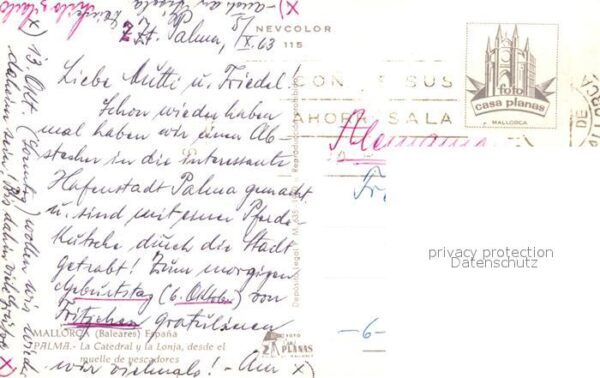 auch an Gisela
NEVCOLOR
115
z. Zt. Palma, 5/X.63
Liebe Mutti u. Friedel!
Schon wieder haben
mal haben wir einen Ab-
stecher in die interessante
Hafenstadt Palma gemacht
u. sind mit einer Pferde
Kutsche durch die Stadt
getrabt! Zum morgigen
Geburtstag (6. Oktober) von
Fritzchen gratulieren
wir vielmals! - Am X)
X) 13. Okt. (Sonntag) wollen wir wieder
daheim sein! Bis dahin viele Grüsse
CON SUS
AHORR SALA
foto
casa planas
MALLORCA
DE
Alemania
-6-
privacy protection
Datenschutz
MALLORCA (Baleares) España
PALMA.- La Catedral y la Lonja, desde el
muelle de pescadores
FOTO
CASA
PLANAS